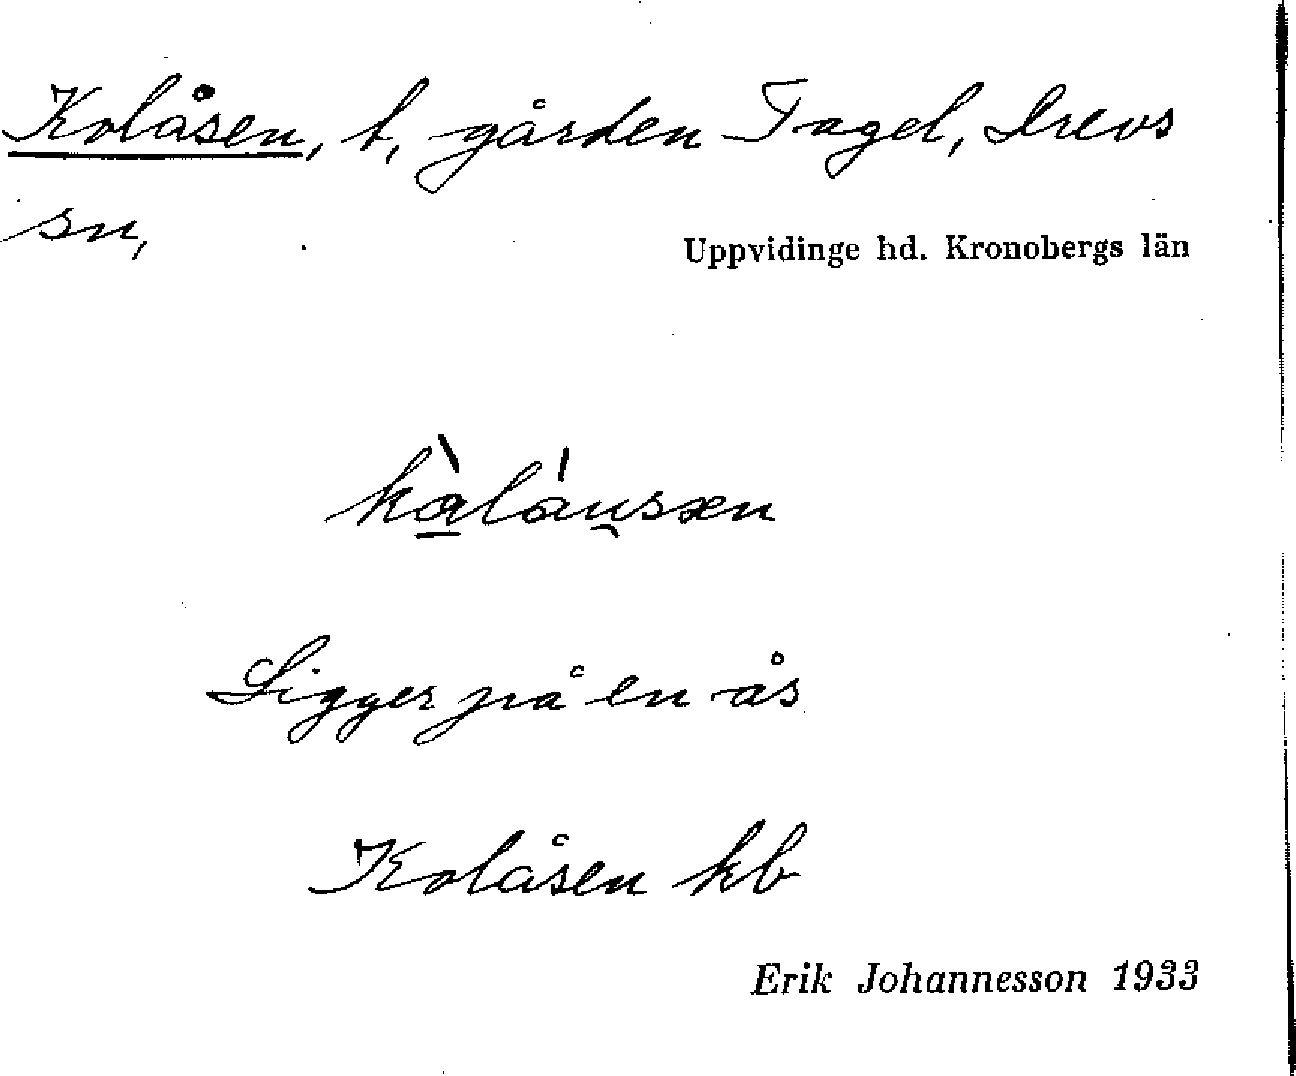 Kolåsen, t, gården Tagel, Drevs
sn,
Uppvidinge hd. Kronobergs län
kàláusen
Ligger på en ås
Kolåsen kb
Erik Johannesson 1933